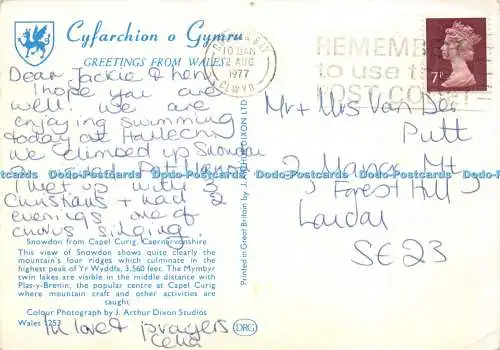 Cyfarchion o Gymru
GREETINGS FROM WALES
BAY
10 15 AM
2 AUG
1977
CLWYD
REMEMBER
to use the
POST CODE
7P
Dear Jackie &
I hope you are
well! We are
enjoying swimming
today at Harlech
We climbed up Snowdon
I met up with 3
Christians + had 2
evenings one of
chorus singing.
Mr + Mrs Van Der
Putt
2 Manor Mt
Forest Hill
London
SE23
Dodo-Postcards Dodo-Postcards Dodo-Postcards Dodo-Postcards
Printed in Great Britain by J. ARTHUR DIXON LTD
Snowdon from Capel Curig, Caernarvonshire
This view of Snowdon shows quite clearly the
mountain's four ridges which culminate in the
highest peak of Yr Wyddfa, 3,560 feet. The Mymbyr
twin lakes are visible in the middle distance with
Plas-y-Brenin, the popular centre at Capel Curig
where mountain craft and other activities are
taught
Colour Photograph by J. Arthur Dixon Studios
Wales 1253
DRG
In love & prayers
Celia